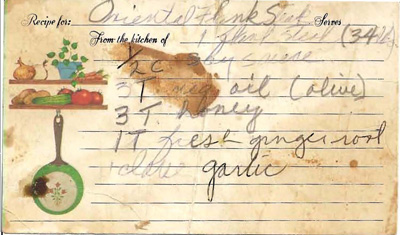 Recipe for: Oriental Flank Steak Serves
From the kitchen of 1 flank steak (3/4 lb)
1/2 C soy sauce
3 T veg oil (olive)
3 T honey
1 T fresh ginger root
clove garlic